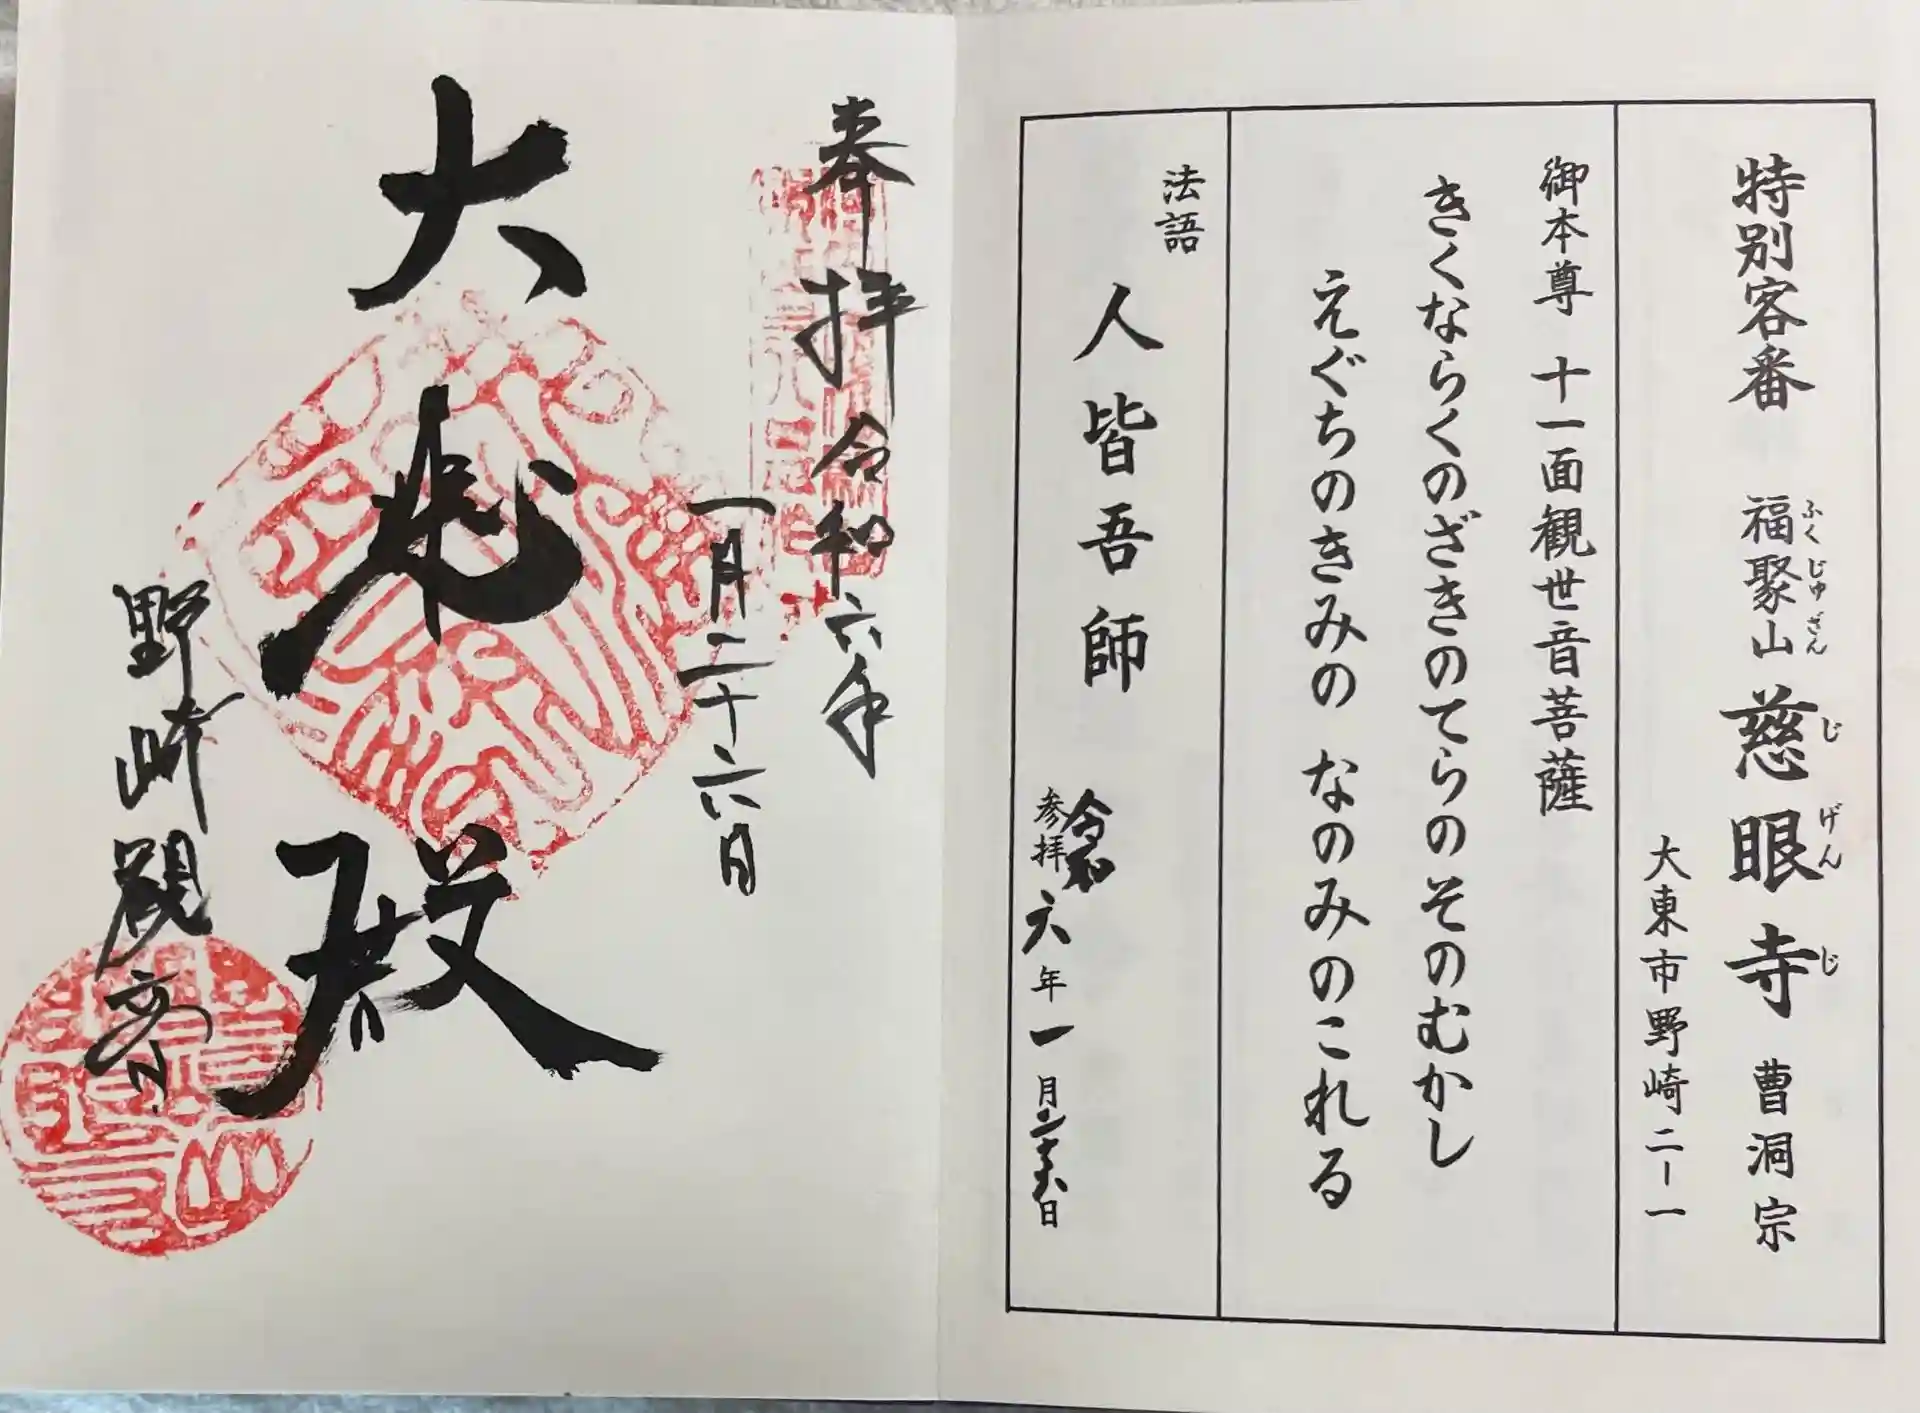 特別客番 福聚山 慈眼寺 曹洞宗
ふくじゅざん じげんじ
大東市野崎二ー一
御本尊 十一面観世音菩薩
きくならくのざきのてらのそのむかし
えぐちのきみの なのみのこれる
法語
人皆吾師
参拝 令和六年一月二十六日
奉拝 令和六年
一月二十六日
大悲殿
野崎観音